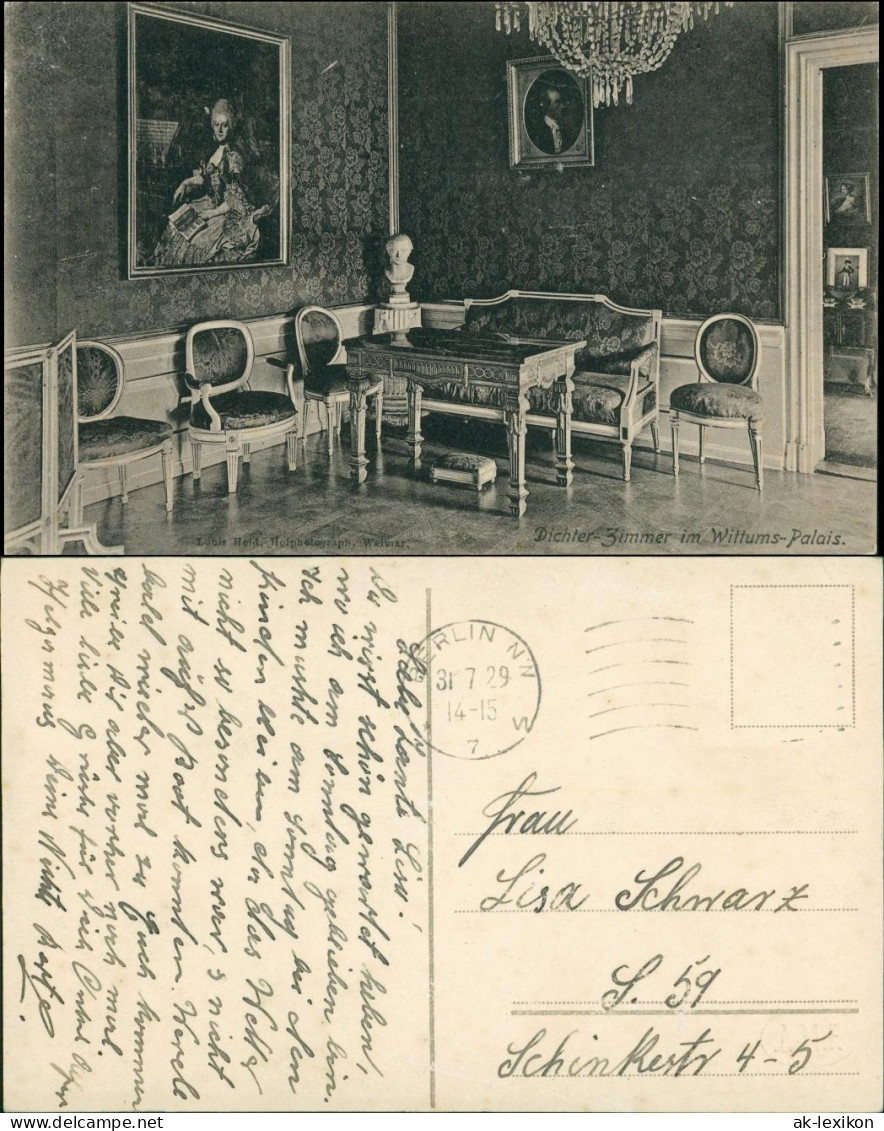 Louis Held, Hofphotograph, Weimar.
Dichter-Zimmer im Wittums-Palais.
Liebe Tante Lisa,
Du wirst schön gewartet haben,
wo ich am Sonntag geblieben bin.
Ich mußte am Sonntag bei den
Kindern bleiben, da das Wetter
nicht so besonders war, & nicht
mit aufs Boot konnten. Werde
bald wieder mal zu Euch kommen
Dir aber vorher noch mal.
Viele liebe Grüße für Dich Onkel
Deine Nichte
BERLIN N.N
31 7 29
14-15
S
7
Frau
Lisa Schwarz
S. 59
Schinkestr 4-5
ak-lexikon